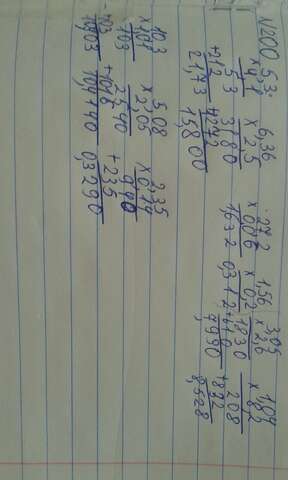 N200
5,3 6,36 27,2 1,56 3,05 1,04
×4,1 ×2,5 ×0,06 ×0,2 ×2,6 ×8,2
53 3180 1,632 0,312 1830 208
+212 +1272 +610 +832
21,73 15,800 7,990 8,528
10,3 5,08 2,35
×1,01 ×2,05 ×0,14
103 2540 940
+103 +1016 +235
10,403 10,4140 0,3290